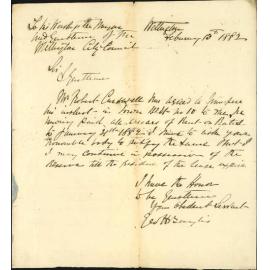 To his Worship the Mayor
and Gentlemen of the
Wellington City Council
Wellington
February 15th 1892
Sir &
Gentlemen
Mr Robert has agreed to transfer
his interest in Town No 10 to me, he
having paid all arrears of Rent & Rates
to January 1892. I have to ask your
honorable body to the same that
I may continue in possession of the
Reserve till the of the lease
I have the Honor
to be Gentlemen
Your obedient Servant
Geo